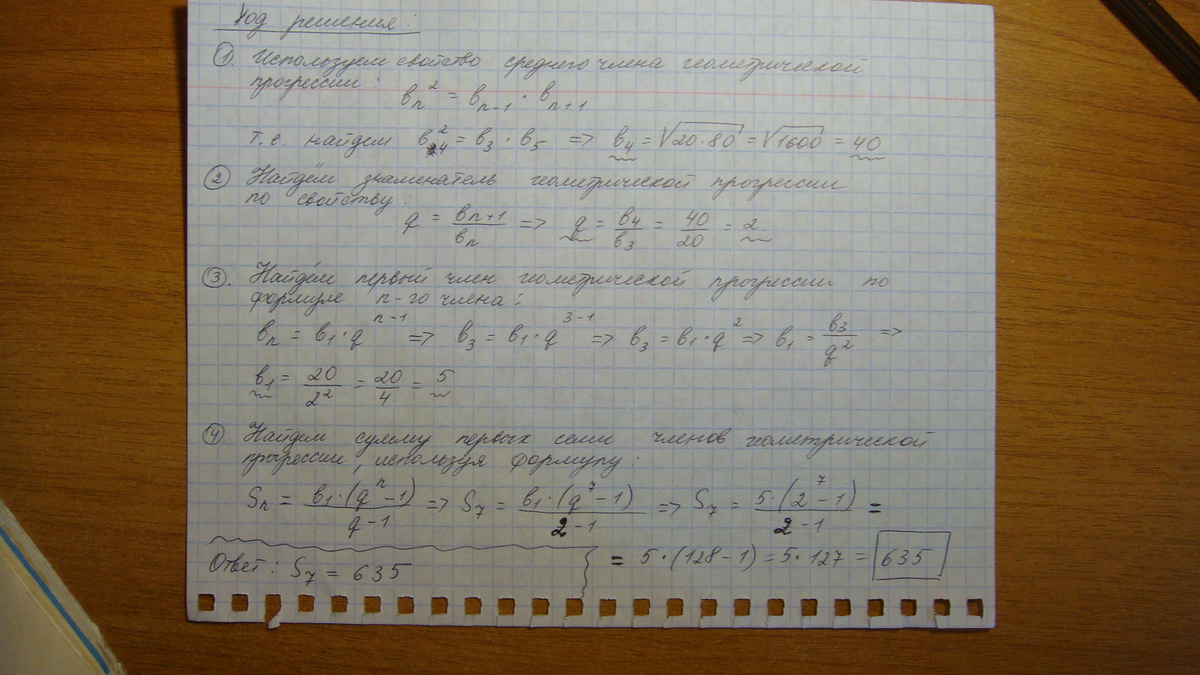 Ход решения:
①. Используем свойство среднего члена геометрической
прогрессии: bₙ² = bₙ₋₁ · bₙ₊₁
т.е. найдем b₄² = b₃ · b₅ => b₄ = √20·80 = √1600 = 40
② Найдём знаменатель геометрической прогрессии
по свойству:
q = bₙ₊₁/bₙ => q = b₄/b₃ = 40/20 = 2.
③. Найдём первый член геометрической прогрессии по
формуле n-го члена:
bₙ = b₁·qⁿ⁻¹ => b₃ = b₁·q³⁻¹ => b₃ = b₁·q² => b₁ = b₃/q² =>
b₁ = 20/2² = 20/4 = 5
④. Найдем сумму первых семи членов геометрической
прогрессии, используя формулу:
Sₙ = b₁·(qⁿ-1)/q-1 => S₇ = b₁·(q⁷-1)/2-1 => S₇ = 5·(2⁷-1)/2-1 =
= 5·(128-1) = 5·127 = 635
Ответ: S₇ = 635